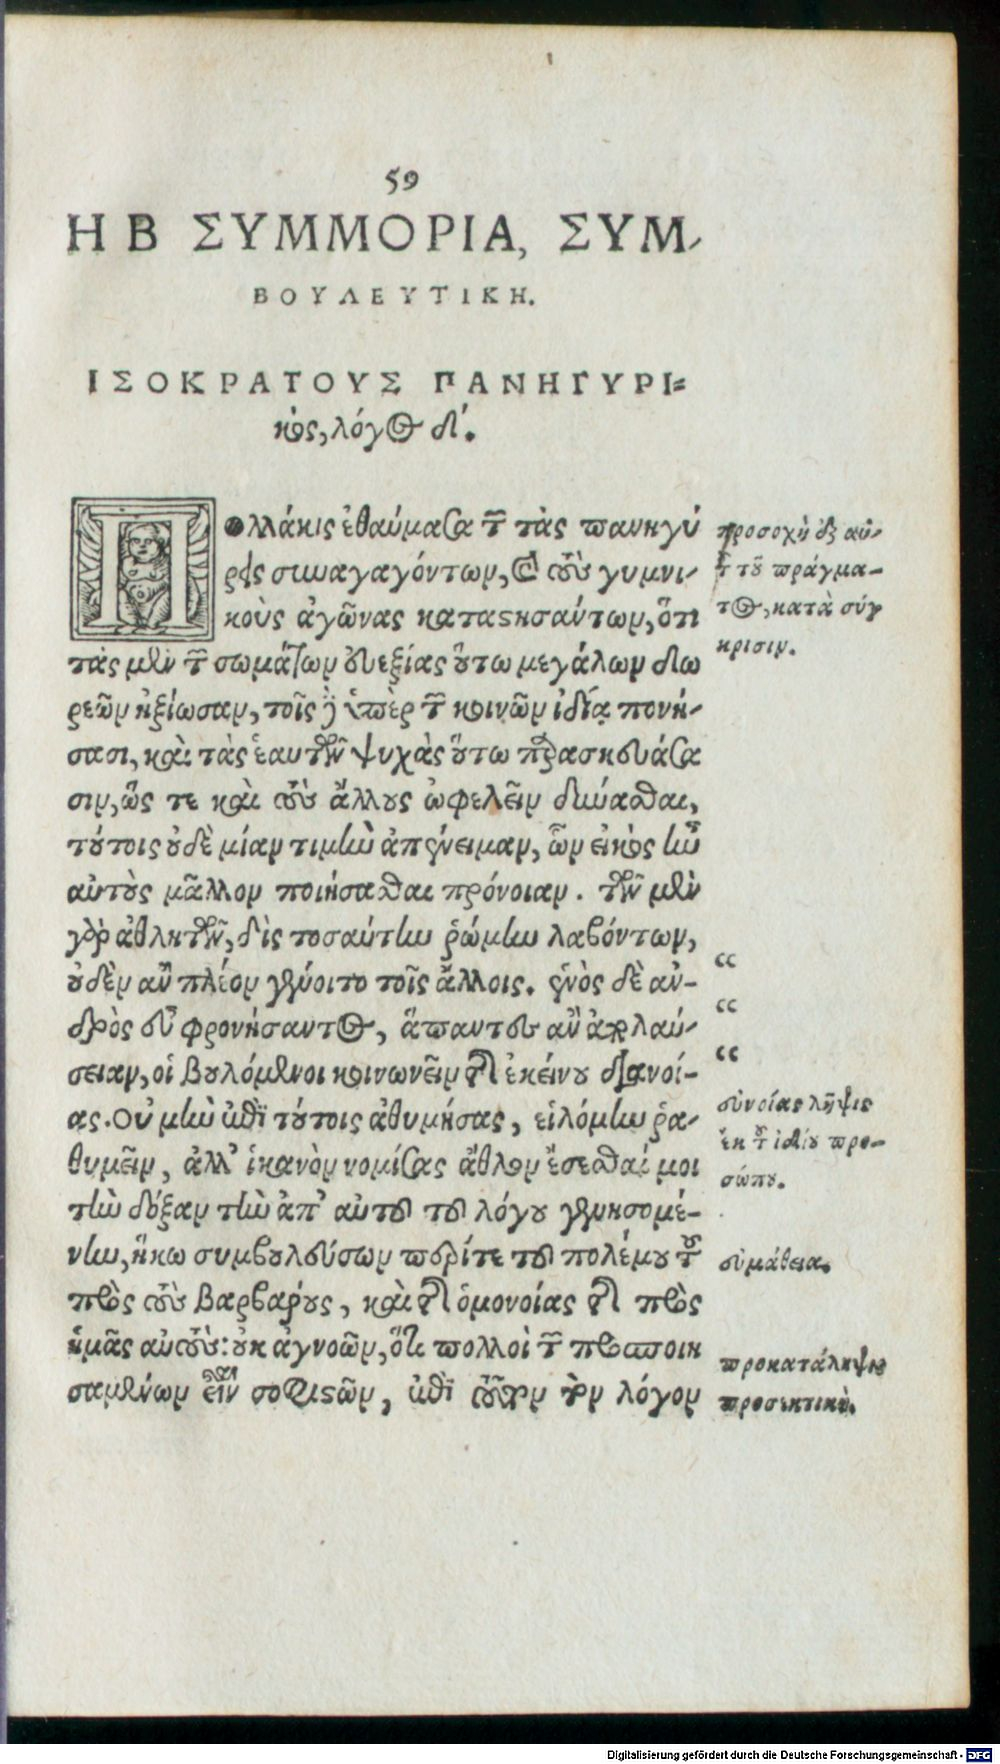 59
Η Β ΣΥΜΜΟΡΙΑ, ΣΥΜ-
ΒΟΥΛΕΥΤΙΚΗ.
ΙΣΟΚΡΑΤΟΥΣ ΠΑΝΗΓΥΡΙ=
κὸς, λόγος δʹ.
Πολλάκις ἐθαύμασα τῶν τὰς πανηγύ
ρεις συναγαγόντων, καὶ τοὺς γυμνι-
κοὺς ἀγῶνας καταστησάντων, ὅτι
τὰς μὲν τῶν σωμάτων εὐεξίας οὕτω μεγάλων δω
ρεῶν ἠξίωσαν, τοῖς δ' ὑπὲρ τῶν κοινῶν ἰδίᾳ πονή-
σασι, καὶ τὰς ἑαυτῶν ψυχὰς οὕτω παρασκευάσα
σιν, ὥς τε καὶ τοὺς ἄλλους ὠφελεῖν δύνασθαι,
τούτοις οὐδὲ μίαν τιμὴν ἀπένειμαν, ὧν εἰκὸς ἦν
αὐτοὺς μᾶλλον ποιήσασθαι πρόνοιαν. τῶν μὲν
γὰρ ἀθλητῶν, δὶς τοσαύτην ῥώμην λαβόντων,
οὐδὲν ἂν πλέον γένοιτο τοῖς ἄλλοις. ἑνὸς δὲ ἀν-
δρὸς εὖ φρονήσαντος, ἅπαντες ἂν ἀπολαύ-
σειαν, οἱ βουλόμενοι κοινωνεῖν τῆς ἐκείνου διανοί-
ας. Οὐ μὴν ἐπὶ τούτοις ἀθυμήσας, εἱλόμην ῥα-
θυμεῖν, ἀλλ' ἱκανὸν νομίσας ἆθλον ἔσεσθαί μοι
τὴν δόξαν τὴν ἀπ' αὐτοῦ τοῦ λόγου γενησομέ-
νην, ἥκω συμβουλεύσων περίτε τοῦ πολέμου τοῦ
πρὸς τοὺς βαρβάρους, καὶ τῆς ὁμονοίας τῆς πρὸς
ἡμᾶς αὐτούς: οὐκ ἀγνοῶν, ὅτι πολλοὶ τῶν προσποιη
σαμένων εἶναι σοφιστῶν, ἐπὶ τοῦτον τὸν λόγον
προσοχὴ ἐξ αὐ-
τοῦ τοῦ πράγμα-
τος, κατὰ σύγ
κρισιν.
“
“
“
εὐνοίας λῆψις
ἐκ τοῦ ἰδίου προ-
σώπου.
εὐμάθεια.
προκατάληψις
προσεκτική.
Digitalisierung gefördert durch die Deutsche Forschungsgemeinschaft - DFG